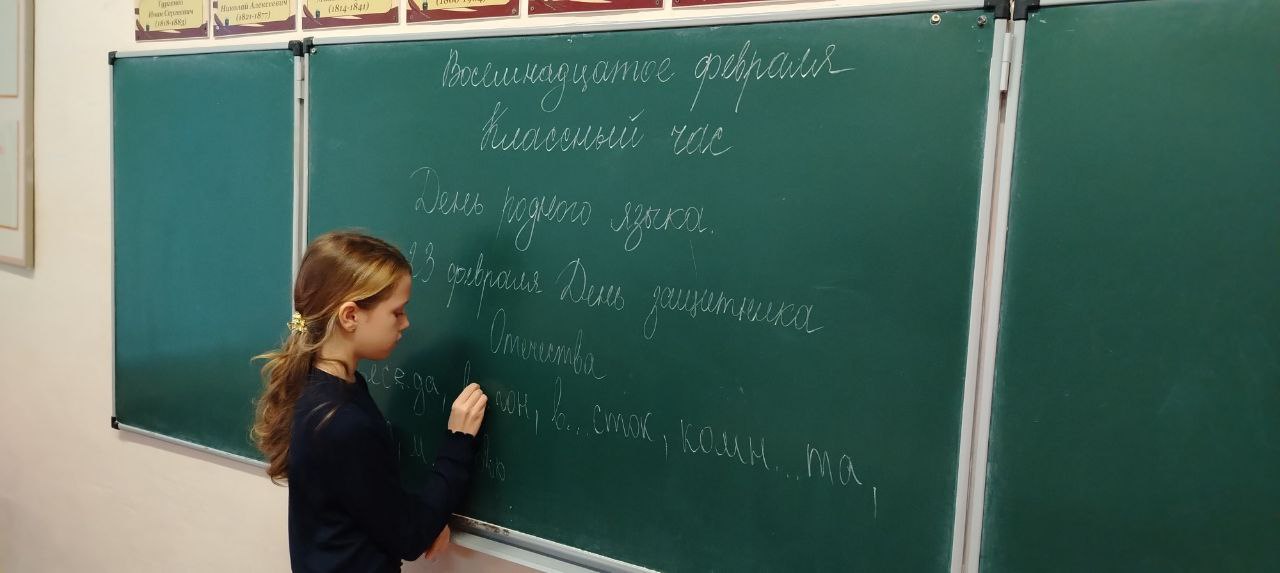 Тургенев
Иван Сергеевич
(1818-1883)
Николай Алексеевич
(1821-1877)
(1814-1841)
Восемнадцатое февраля
Классный час
День родного языка.
23 февраля День защитника
Отечества
в...сток, комн...та,